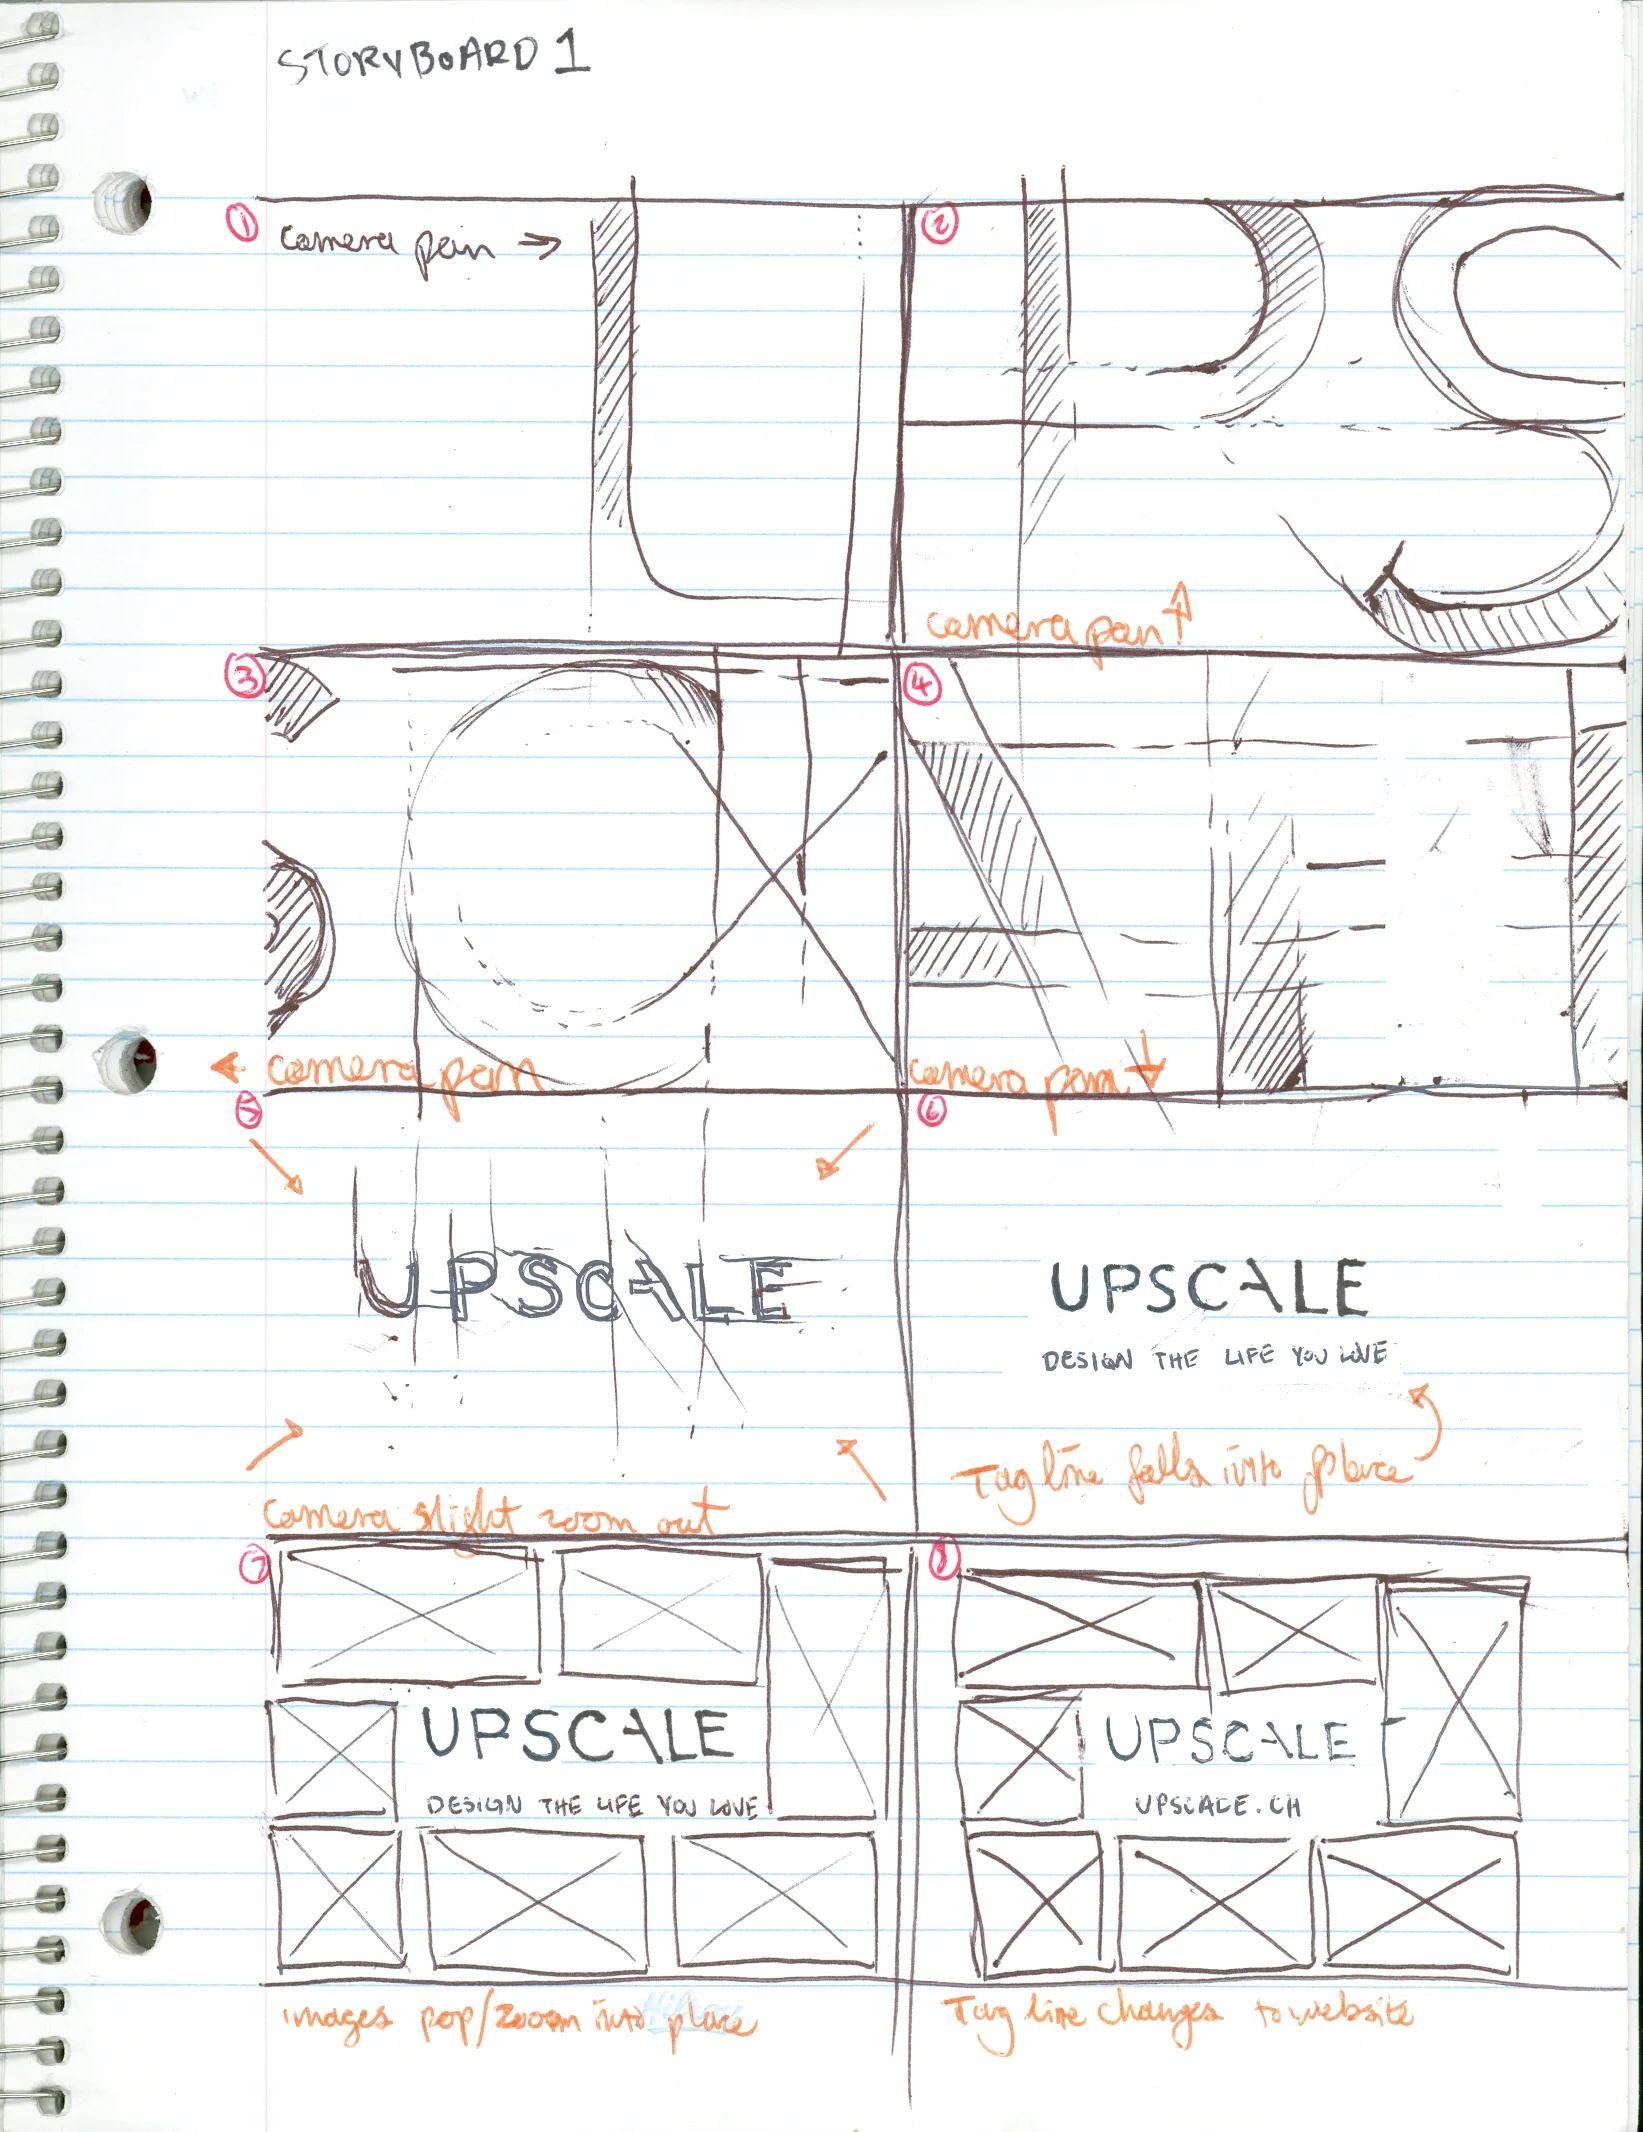 STORYBOARD 1
1 camera pan →
2
UPS
camera pan ↑
3
4
CA
← camera pan
camera pan ↓
5
6
UPSCALE
UPSCALE
DESIGN THE LIFE YOU LOVE
Tag line falls into place
camera slight zoom out
7
8
UPSCALE
DESIGN THE LIFE YOU LOVE
UPSCALE
UPSCALE.CH
images pop/zoom into place
Tag line changes to website